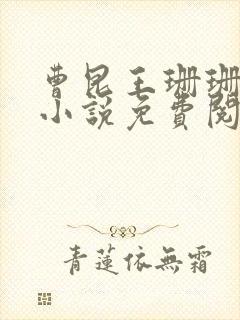 曹昆王珊珊
小說免費閱
青蓮依無霜